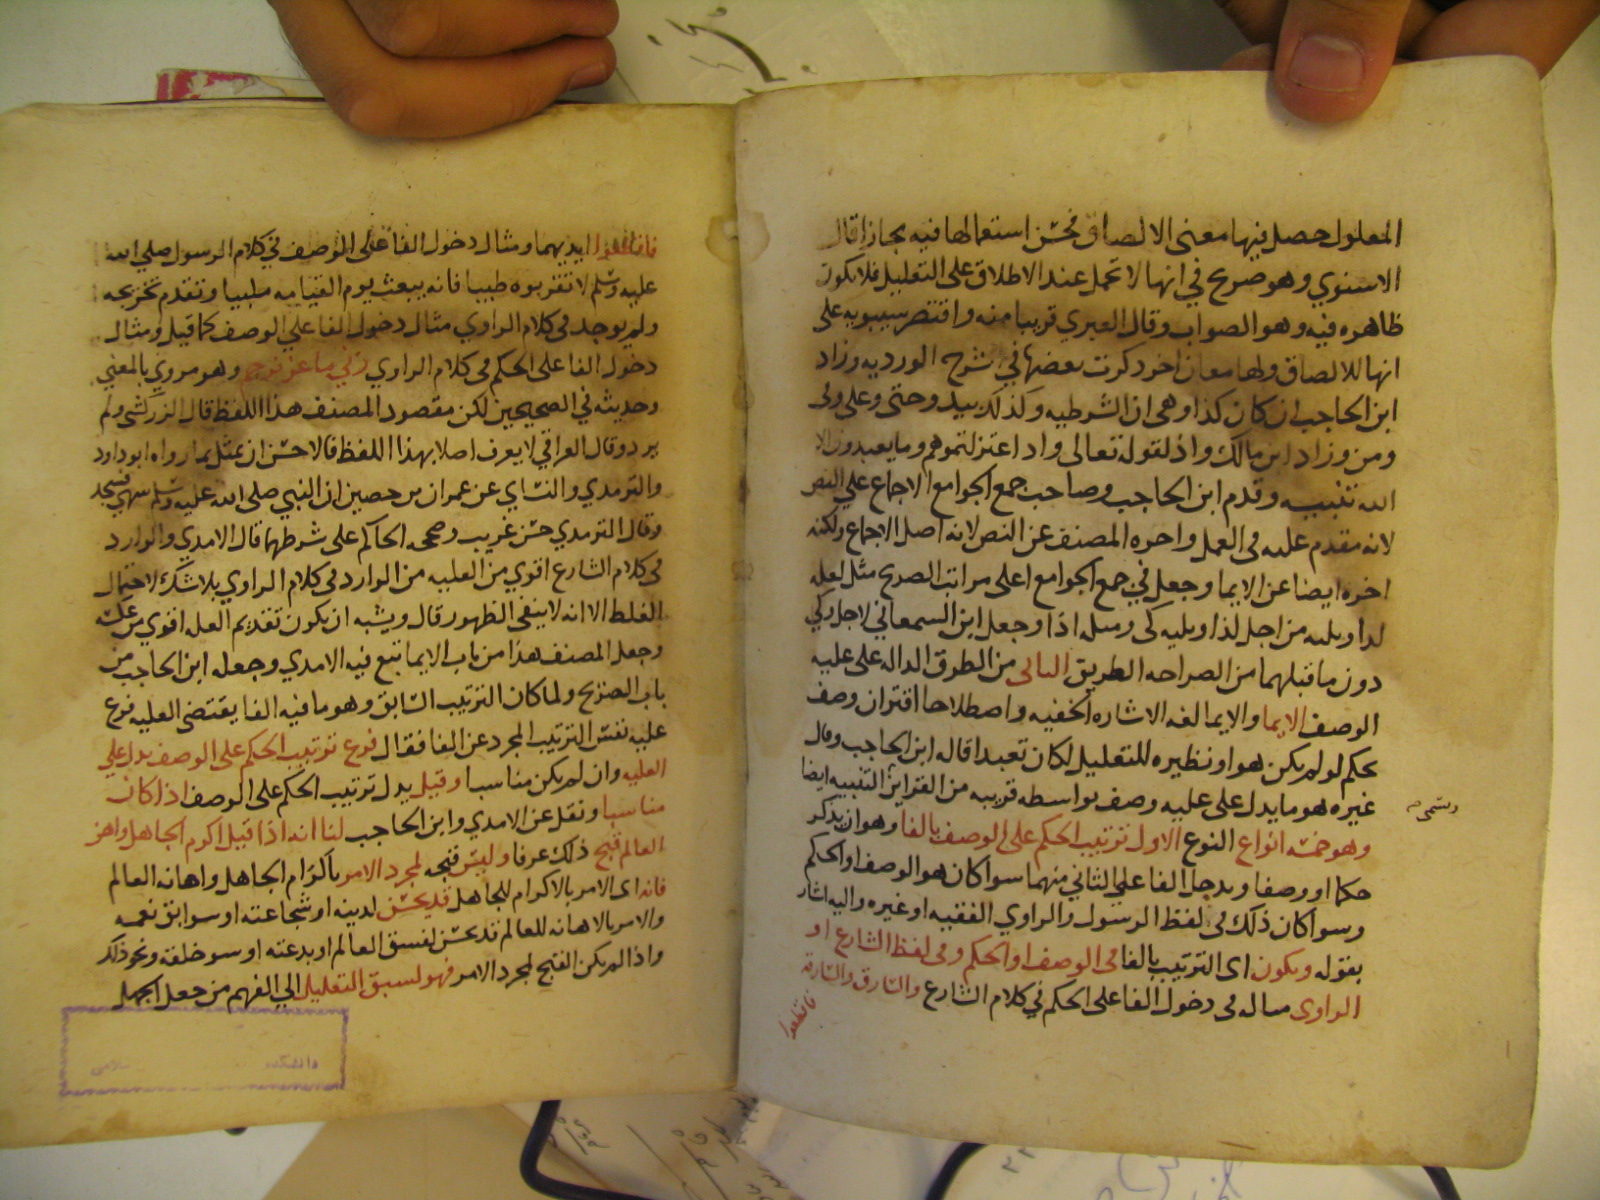 المعلول حصل فيها معنى الالصاق فحسن استعمالها فيه مجازا قال
الاسنوي وهو صريح في انها لا تحمل عند الاطلاق على التعليل فلا تكون
ظاهره فيه وهو الصواب وقال العبري قريبا منه واقتصر سيبويه على
انها للالصاق ولها معان اخر ذكرت بعضها في شرح الورديه وزاد
ابن الحاجب ان كان كذا وهي ان الشرطيه وكذلك بيد وحتى وعلى وفى
ومن وزاد ابن مالك واذ لقوله تعالى واد اعتزلتموهم وما يعبدون الا
الله تنبيه وقدم ابن الحاجب وصاحب جمع الجوامع الاجماع على النص
لانه مقدم عليه فى العمل واخره المصنف عن النص لانه اصل الاجماع ولكنه
اخره ايضا عن الايما وجعل في جمع الجوامع اعلى مراتب الصريح مثل لعله
لدا ويليه من اجل لذا ويليه كى ومثله اذا وجعل ابن السمعاني لاجل وكي
دون ما قبلهما من الصراحه الطريق الثانى من الطرق الداله على عليه
الوصف الايما والايما لغه الاشاره الخفيه واصطلاحا اقتران وصف
بحكم لو لم يكن هو او نظيره للتعليل لكان بعيدا قاله ابن الحاجب وقال
غيره هو ما يدل على عليه وصف بواسطه قرينه من القراين التنبيه ايضا
ويسمى
وهو خمسه انواع النوع الاول ترتيب الحكم على الوصف بالفا وهو ان يذكر
حكما او وصفا ويدخل الفا على الثاني منهما سوا كان هو الوصف او الحكم
وسوا كان ذلك فى لفظ الرسول والراوي الفقيه او غيره واليه اشار
بقوله ويكون اى الترتيب بالفا فى الوصف او الحكم وفى لفظ الشارع او
الراوى مثاله فى دخول الفا على الحكم في كلام الشارع والسارق والسارقة
فاقطعوا
فاقطعوا ايديهما ومثال دخول الفا على الوصف في كلام الرسول صلى الله
عليه وسلم لا تقربوه طيبا فانه يبعث يوم القيامه ملبيا وتقدم تخريجه
ولم يوجد فى كلام الراوي مثال دخول الفا على الوصف كما قيل ومثال
دخول الفا على الحكم فى كلام الراوي زنى ماعز فرجم وهو مروي بالمعني
وحديثه في الصحيحين لكن مقصود المصنف هذا اللفظ قال الزركشى ولم
يرد وقال العراقي لا يعرف اصلا بهذا اللفظ فالاحسن ان يمثل بما رواه ابو داود
والترمدي والنساي عن عمران بن حصين ان النبي صلى الله عليه وسلم سهى فسجد
وقال الترمدي حسن غريب وصححه الحاكم على شرطهما قال الامدي والوارد
فى كلام الشارع اقوي من العليه من الوارد فى كلام الراوي بلا شك لاحتمال
الغلط الا انه لا ينفى الظهور قال ويشبه ان يكون تقديم العله اقوي من عكسه
وجعل المصنف هذا من باب الايما تبع فيه الامدي وجعله ابن الحاجب من
باب الصريح ولما كان الترتيب السابق وهو ما فيه الفا يقتضى العليه فرع
عليه نفس الترتيب المجرد عن الفا فقال فرع ترتيب الحكم على الوصف يدل على
العليه وان لم يكن مناسبا وقيل يدل ترتيب الحكم على الوصف اذا كان
مناسبا ونقل عن الامدي وابن الحاجب لنا انه اذا قيل اكرم الجاهل واهن
العالم قبح ذلك عرفا وليس قبحه لمجرد الامر باكرام الجاهل واهانه العالم
فانه اى الامر بالاكرام للجاهل قد يحسن لدينه او شجاعته او سوابق نعمه
والامر بالاهانه للعالم قد يحسن لفسق العالم او بدعته او سو خلقه ونحو ذلك
واذا لم يكن القبح لمجرد الامر فهو لسبق التعليل الي الفهم من جعل الجهل
دانشكده